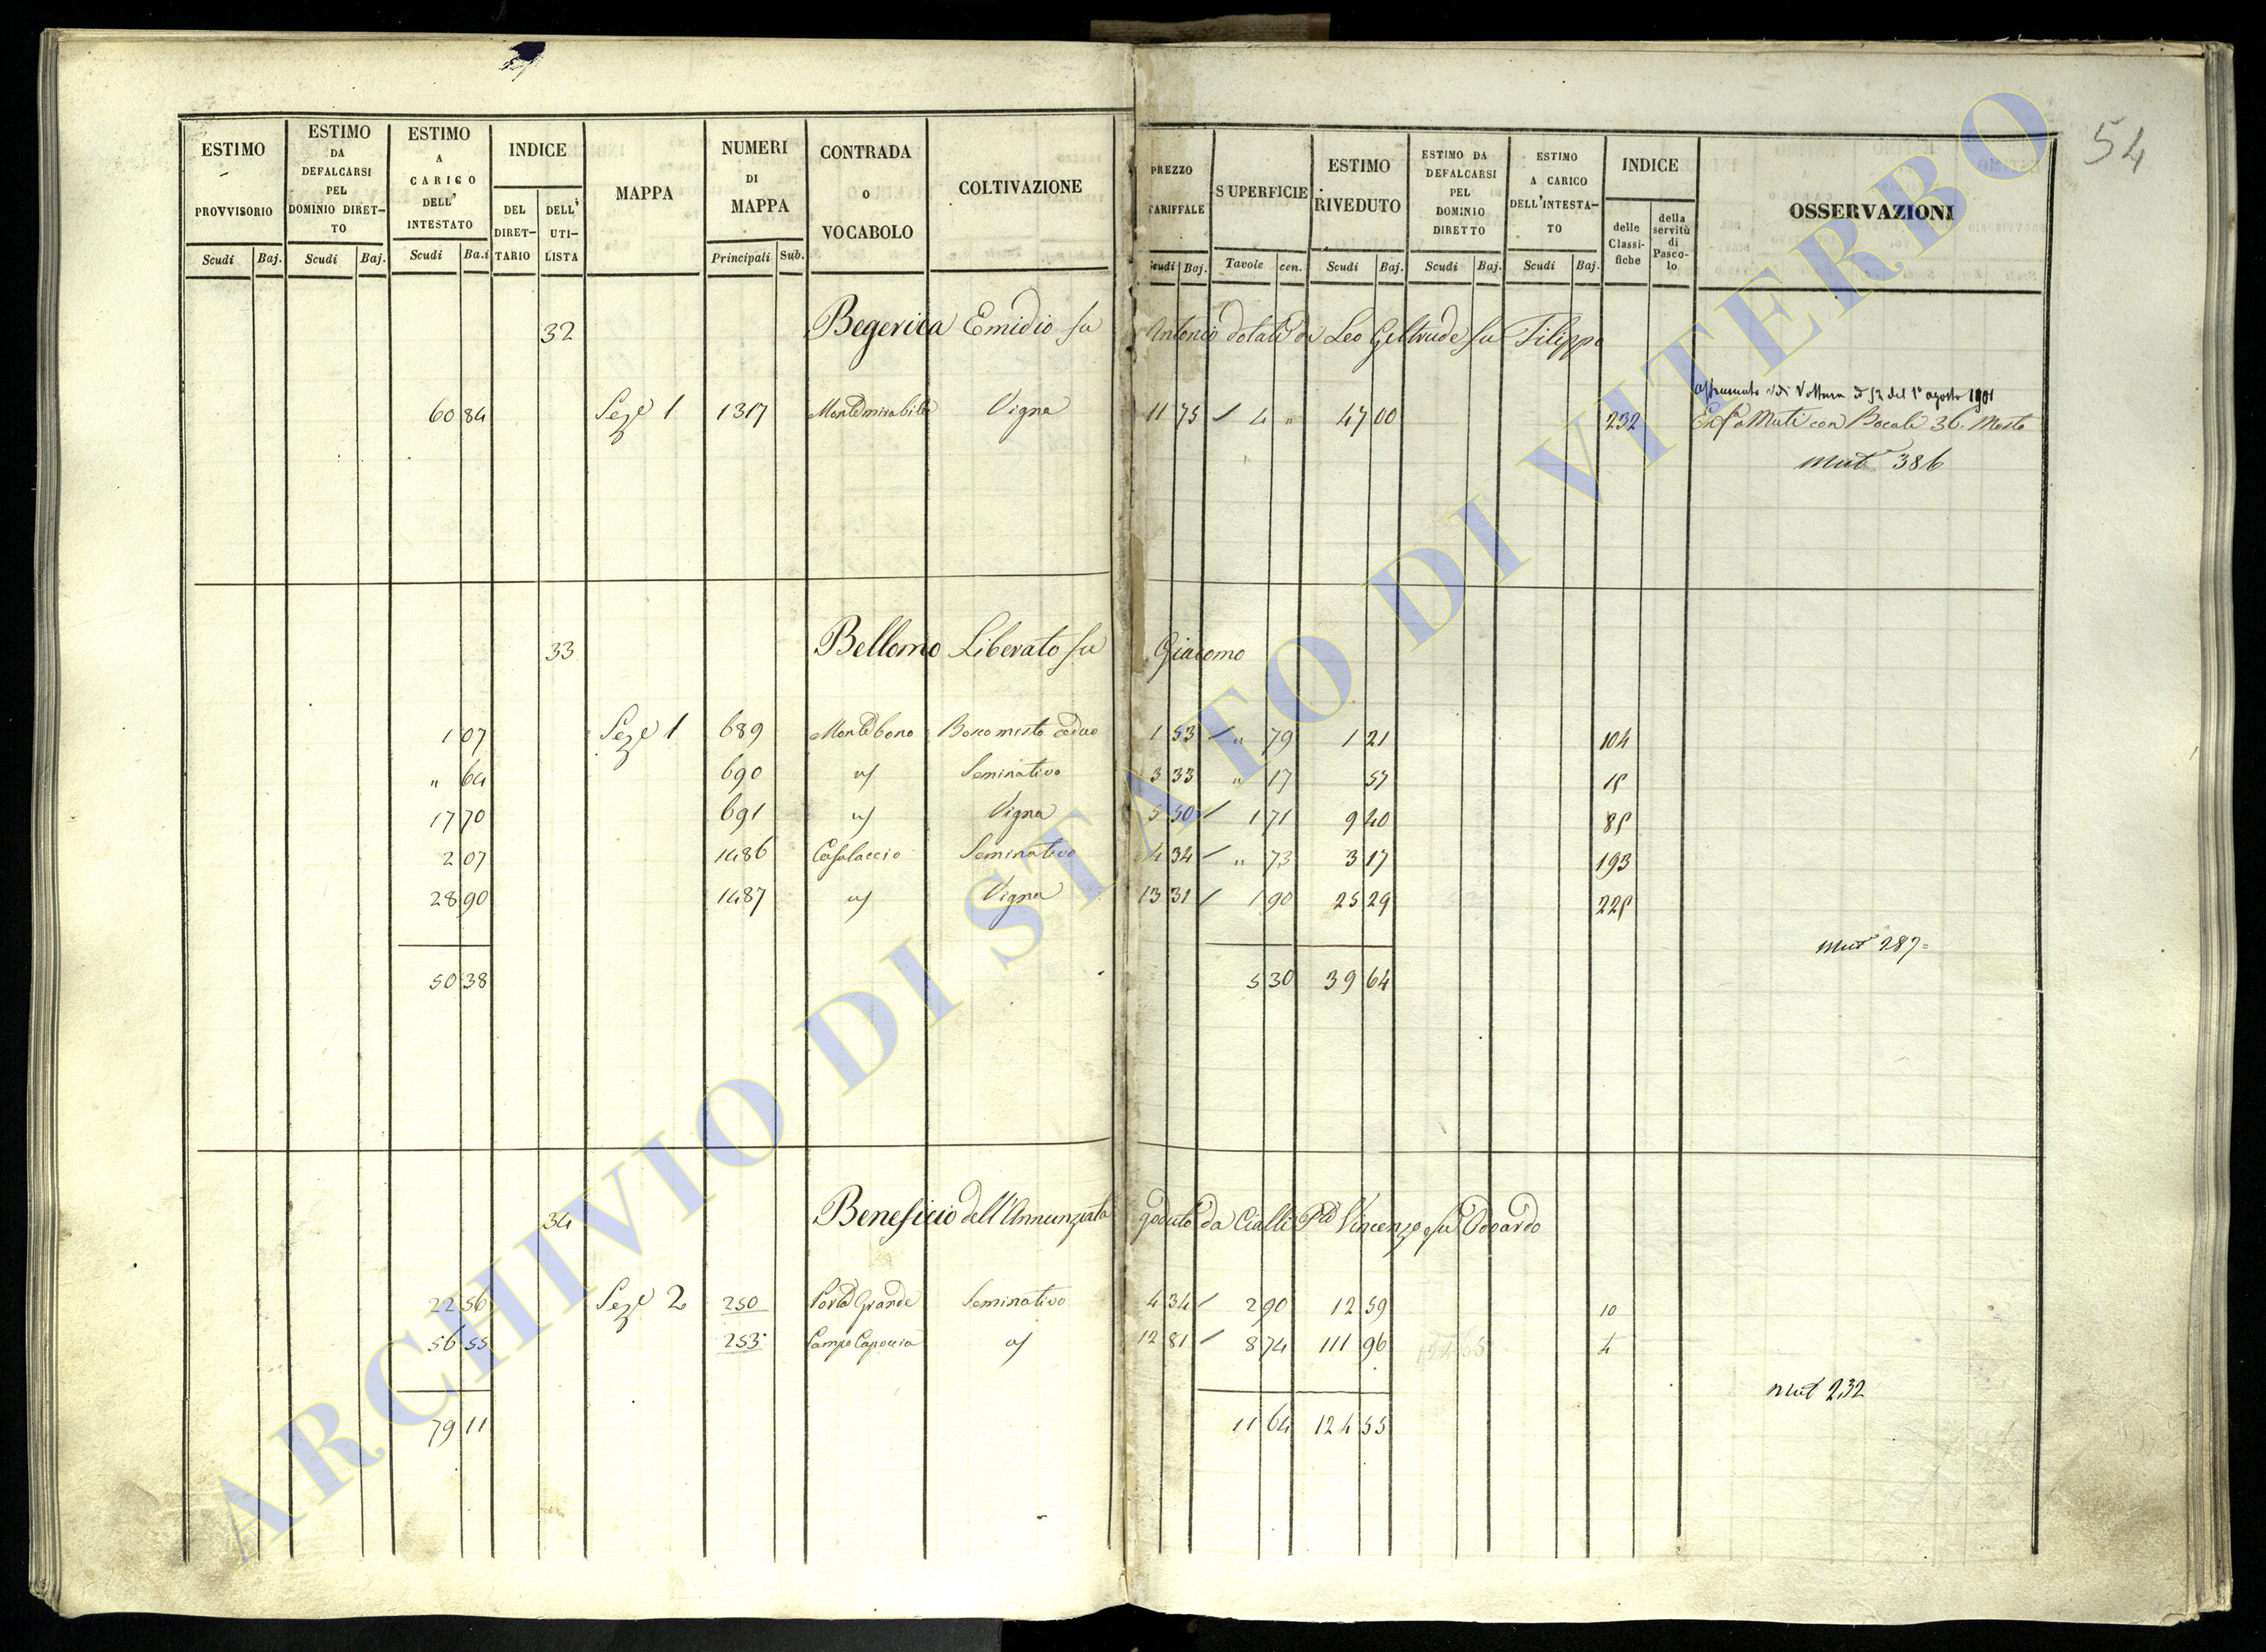 54
ESTIMO PROVVISORIO
ESTIMO DA DEFALCARSI PEL DOMINIO DIRET-TO
ESTIMO A CARICO DELL' INTESTATO
INDICE
DEL DIRET-TARIO
DELL' UTI-LISTA
MAPPA
NUMERI DI MAPPA
CONTRADA o VOCABOLO
COLTIVAZIONE
PREZZO TARIFFALE
SUPERFICIE
ESTIMO RIVEDUTO
ESTIMO DA DEFALCARSI PEL DOMINIO DIRETTO
ESTIMO A CARICO DELL'INTESTA-TO
INDICE
delle Classi-fiche
della servitù di Pasco-lo
OSSERVAZIONI
Scudi Baj. Scudi Baj. Scudi Ba.i Principali Sub. Scudi Baj. Tavole cen. Scudi Baj. Scudi Baj. Scudi Baj.
32 Begerica Emidio fu Antonio dotali di Leo Geltrude fu Filippo
del 1° agosto 1901
60 84 Seze 1 1317 Montemirabile Vigna 11 75 4 " 47 00 232 con Bocali 36. Mosto
mut 386
33 Bellomo Liberato fu Giacomo
1 07 Seze 1 689 Montebono Bosco misto ceduo 1 53 " 79 1 21 104
" 64 690 Seminativo 3 33 " 17 57 15
17 70 691 Vigna 5 50 1 71 9 40 85
2 07 1486 Casalaccio Seminativo 4 34 " 73 3 17 193
28 90 1487 Vigna 13 31 1 90 25 29 225
mut 287=
50 38 5 30 39 64
34 Beneficio dell'Annunziata goduto da Cialli Vincenzo fu Odoardo
22 56 Seze 2 250 Porta Grande Seminativo 4 34 2 90 12 59 10
56 55 253 Campo Capoccia 12 81 8 74 111 96 4
mut 232
79 11 11 64 124 55
ARCHIVIO DI STATO DI VITERBO